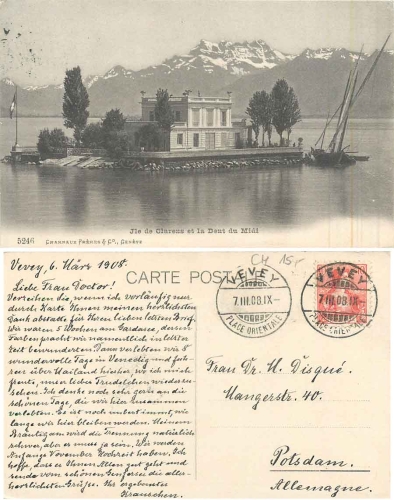 Jle de Clarens et la Dent du Midi
5246 CHARNAUX FRÈRES & Cº., GENÈVE
CARTE POSTALE
CH 15.-
VEVEY
7.III.08.IX-
PLACE ORIENTALE
VEVEY
7.III.08.IX-
PLACE ORIENTALE
Vevey, 6. März 1908.
Liebe Frau Doctor!
Verzeihen Sie, wenn ich vorläufig nur
durch Karte Ihnen meinen herzlichsten
Dank abstatte für Ihren lieben letzten Brief.
Wir waren 5 Wochen am Gardasee, dessen
Farbenpracht wir namentlich in letzter
Zeit bewunderten. Dann verlebten wir 8
wundervolle Tage in Venedig und fuh-
ren über Mailand hierher, wo ich mich
freute, unser liebes Trudelchen wiederzu-
sehen. Ich denke noch sehr gern an die
schönen Tage, die wir hier zusammen
verlebten. Es ist noch unbestimmt, wie
lange wir hier bleiben werden. Meinem
Bräutigam wird die Trennung natürlich
schwer, aber es muss ja sein. Wir werden
Anfange November Hochzeit haben. Ich
hoffe, dass es Ihnen Allen gut geht und
sende vom schönen Genfersee die aller-
herzlichsten Grüsse. Ihr ergebenster
Frau Dr. H. Disqué
Mangerstr. 40.
Potsdam.
Allemagne.